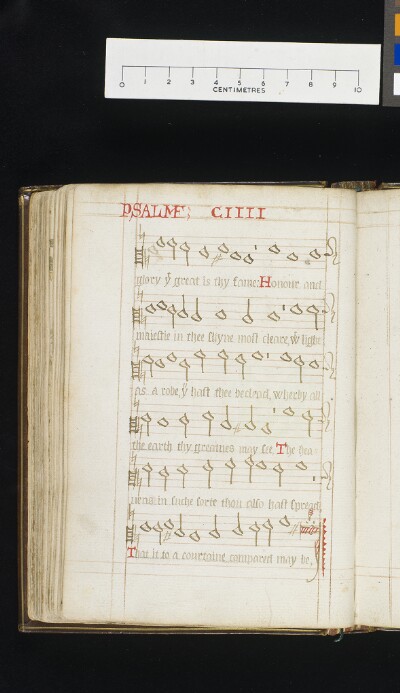 0 1 2 3 4 5 6 7 8 9 10
CENTIMETRES
PSALME; CIIII
glory yͭ great is thy fame: Honour and
maiestie in thee shyne most cleare, wͭ light
As A robe, yͧ hast thee beclead, wherby all
the earth thy greatnes may see. The hea-
uens in suche sorte thou also hast spread
That it to a courtaine compared may be,